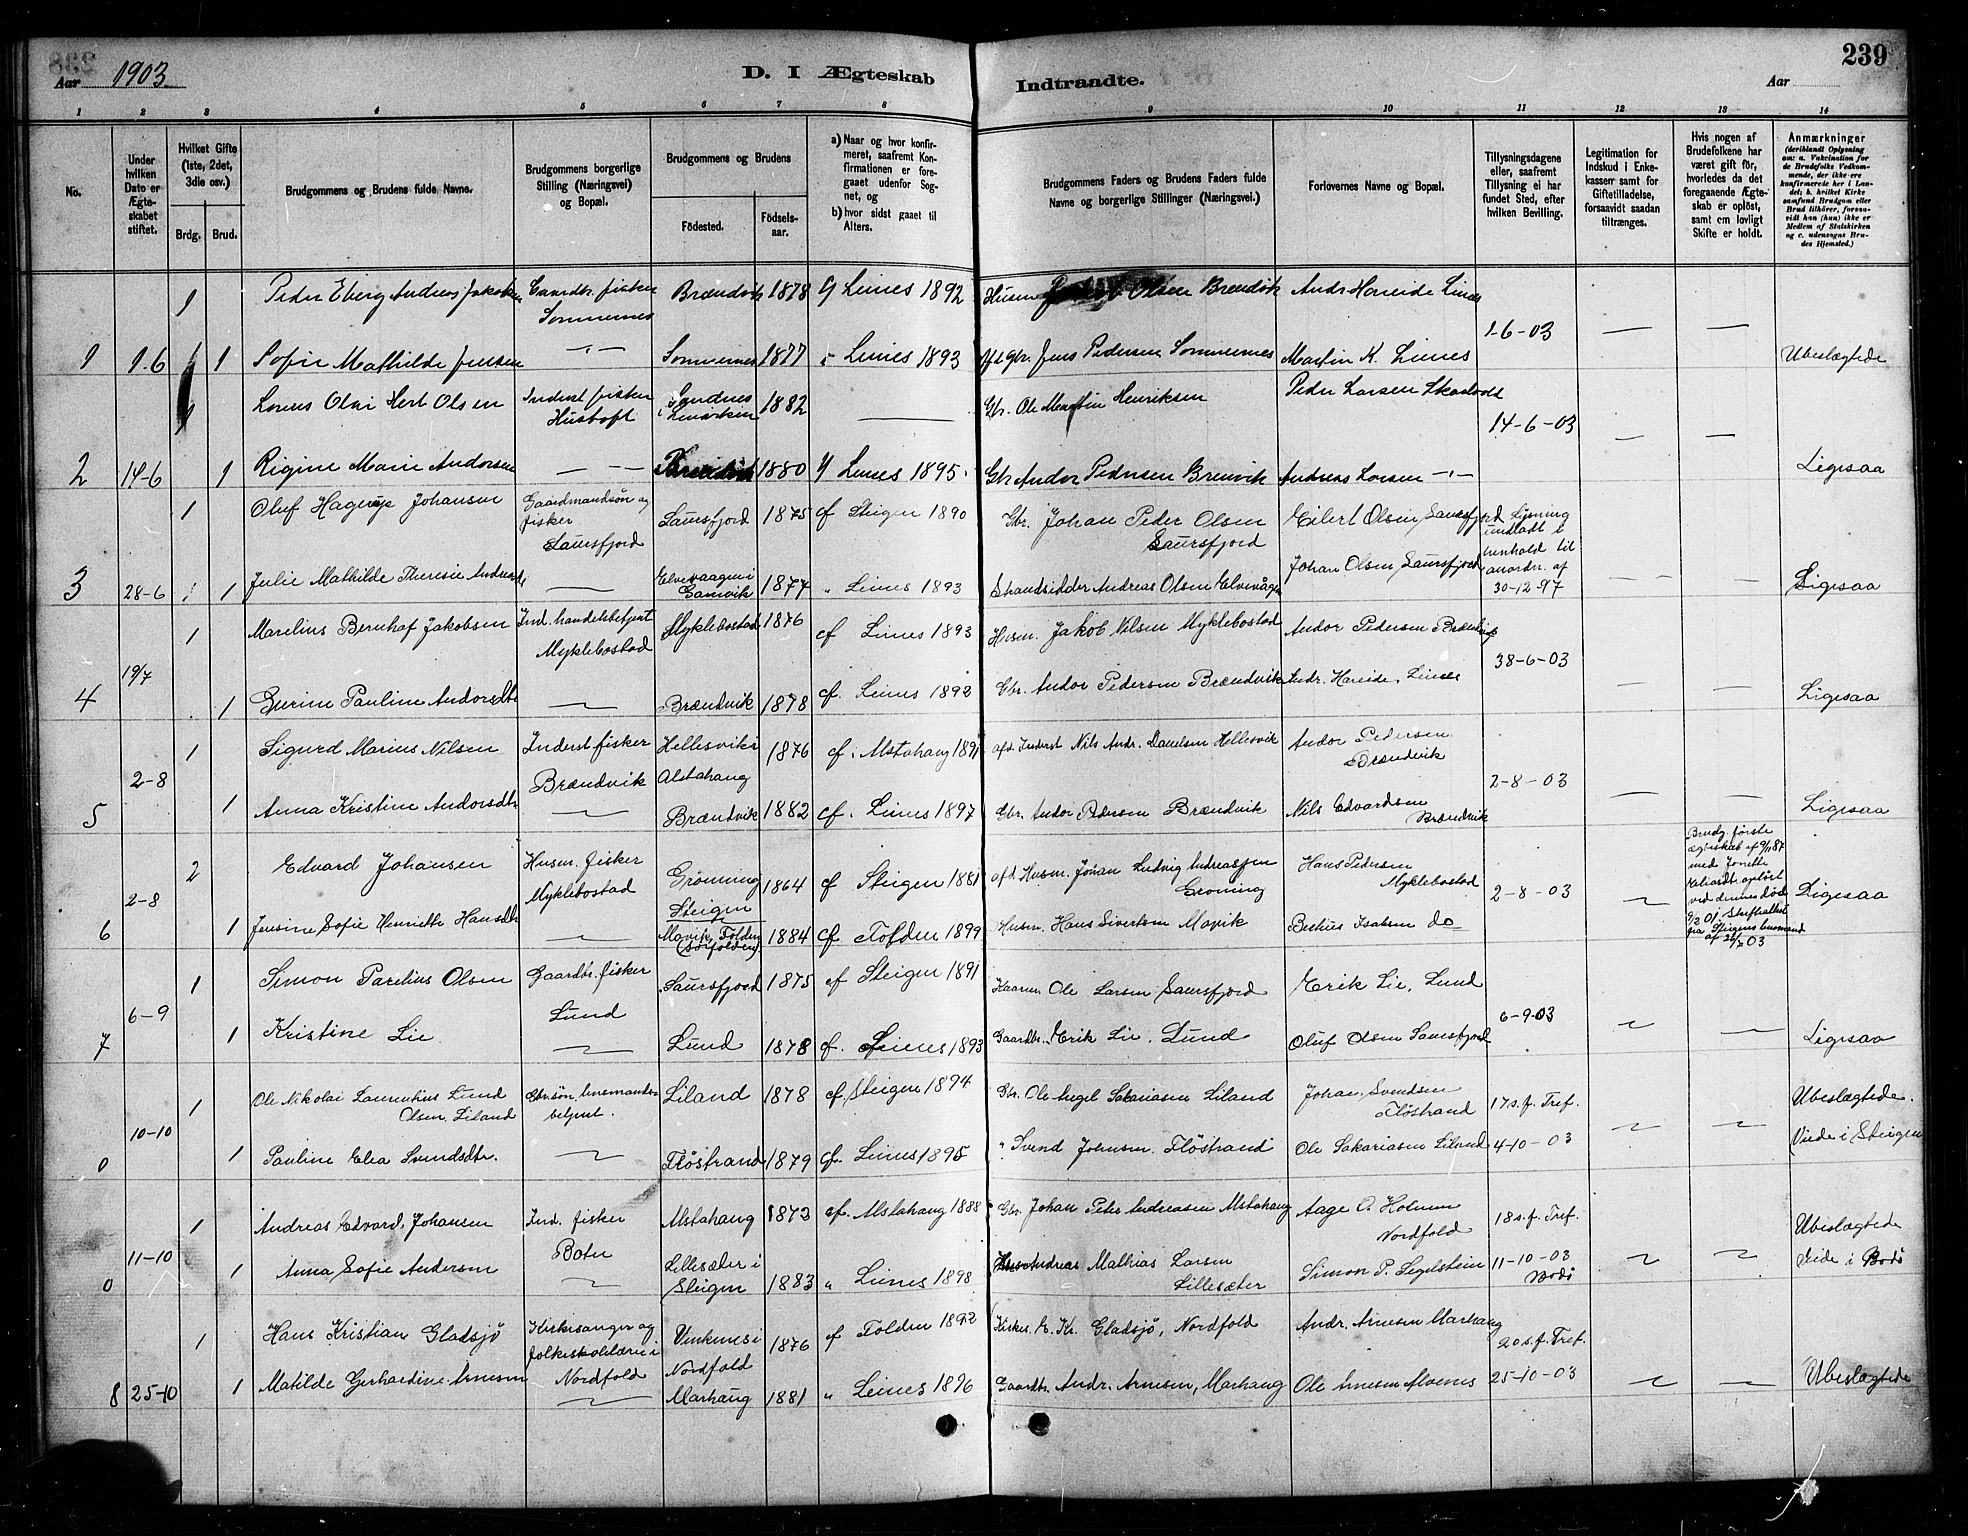 Aar 1903. D. I Ægteskab Indtraadte. Aar 239
1 2 3 4 5 6 7 8 9 10 11 12 13 14
No.
Under hvilken Dato er Ægteskabet stiftet.
Hvilket Gifte (1ste, 2det, 3die osv.)
Brdg. Brud.
Brudgommens og Brudens fulde Navne.
Brudgommens borgerlige Stilling (Næringsvei) og Bopæl.
Brudgommens og Brudens
Fødested. Fødselsaar.
a) Naar og hvor konfirmeret, saafremt Konfirmationen er foregaaet udenfor Sognet, og
b) hvor sidst gaaet til Alters.
Brudgommens Faders og Brudens Faders fulde Navne og borgerlige Stillinger (Næringsvei.)
Forlovernes Navne og Bopæl.
Tillysningsdagene eller, saafremt Tillysning ei har fundet Sted, efter hvilken Bevilling.
Legitimation for Indskud i Enkekassen samt for Giftetilladelse, forsaavidt saadan tiltrænges.
Hvis nogen af Brudefolkene har været gift før, hvorledes da det foregaaende Ægteskab er opløst, samt om lovligt Skifte er holdt.
Anmærkninger (deriblandt Oplysning om: a. Vakcination for de Brudefolks Vedkommende, der ikke ere konfirmerede her i Landet; b. hvilket Kirkesamfund Brudgom eller Brud tilhører, forsaavidt han (hun) ikke er Medlem af Statskirken og c. udensogns Brudes Hjemsted.)
1 Peder Eberg Andreas Jakobsen Gaardbr. fisker Sommernes Brændvik 1878 Leines 1892 Husm. Olsen Brændvik Andr. Hareide Leines
1-6-03
1 1-6 1 Sofie Mathilde Jensen Sommernes 1877 Leines 1893 Gbr. Jens Pedersen Sommernes Martin K. Leines Ubeslægtede
Olai Olsen Inderst fisker Hustoft Sandnes i 1882 Gbr. Ole Martin Henriksen Peder Larsen
14-6-03
2 14-6 1 Rigine Marie Andorsen 1880 Leines 1895. Gbr Andor Pedersen Brenvik Andreas Larsen Ligesaa
1 Oluf Hagerup Johansen Gaardmandsøn og fisker Saursfjord Saursfjord 1875 cf Steigen 1890 Gbr. Johan Peder Olsen Saursfjord Eilert Olsen, Saursfjord Lysning undladt i henhold til anordn. af 30-12-97
3 28-6 1 1 Julie Mathilde Theresie Elvevaagen i Gamvik 1877 " Leines 1893 Strandsidder Andreas Olsen Elvevågen Johan Olsen, Saursfjord Ligesaa
1 Marelius Bernhof Jakobsen Ind. handelsbetjent Myklebostad Myklebostad 1876 cf Leines 1893 Husm. Jakob Nilsen Myklebostad Andor Pedersen Brændvik
38-6-03
4 19/7 1 Gurine Pauline Andorsdtr Brændvik 1878 cf. Leines 1892 Gbr. Andor Pedersen Brændvik Andr. Hareide, Leines Ligesaa
1 Sigurd Marius Nilsen Inderst fisker Brændvik Hellesvik i Alstahaug 1876 cf. Alstahaug 1891 afd. Inderst Nils Andr. Danielsen Hellesvik Andor Pedersen Brændvik
2-8-03
5 2-8 1 Anna Kristine Andorsdtr Brændvik 1882 cf. Leines 1897 Gbr. Andor Pedersen Brændvik Nils Edvardsen Brændvik Ligesaa
2 Edvard Johansen Husm. fisker Myklebostad Grönning Steigen 1864 cf Steigen 1881 afd. Husm. Johan Ludvig Andreassen Groning Hans Pedersen Myklebostad
2-8-03
Brudg. første ægteskab af med opløst ved dennes død Skifteattest fra Steigens lensmand af 03
6 2-8 1 Jensine Sofie Henriette Hansdtr Folden 1884 cf. Folden 1899 Husm. Hans Sivertsen Isaksen do Ligesaa
1 Simon Parelius Olsen Gaardbr. fisker Lund Saursfjord 1875 cf Steigen 1891 Ole Larsen Saursfjord Erik Lie, Lund
6-9-03
7 6-9 1 Kristine Lie. Lund 1878 cf. Leines 1893 Gaardbr. Erik Lie, Lund Oluf Olsen Saursfjord Ligesaa
1 Ole Nikolai Laurentius Lund Olsen Liland Gbr.søn lensmandsbetjent. Liland 1878 cf. Steigen 1894 Gbr. Ole Angel Sakariasen Liland Johan Svendsen Fløstrand 17 s. f. Tref. Ubeslægtede.
0 10-10 1 Pauline Elea Svendsdtr. Fløstrand 1879 cf. Leines 1895 " Svend Johnsen Fløstrand Ole Sakariasen Liland 4-10-03 Viede i Steigen
1 Andreas Edvard Johansen Ind. fisker Alstahaug 1873 cf. Alstahaug 1888 Gbr. Johan Peter Andreasen Alstahaug Aage O. Nordfold 18 s. f. Tref. Ubeslægtede
0 11-10 1 Anna Sofie Andersen Lillesæter i Steigen 1883 " Leines 1898 Andreas Mathias Larsen Lillesæter Simon P. Segelstein 11-10-03 Bodø Viede i Bodø
1 Hans Kristian Gladsjö Kirkesanger og folkeskolelærer i Nordfold Vinkenes i Nordfold 1876 cf Folden 1892 Kirkes. Kr. Gladsjö, Nordfold Andr. Arnesen Marhaug 20 s. f. Tref.
8 25-10 1 Matilde Gerhardine Arnesen Marhaug 1881 " Leines 1896 Gaardbr. Andr. Arnesen, Marhaug Ole Arnesen 25-10-03 Ubeslægtede